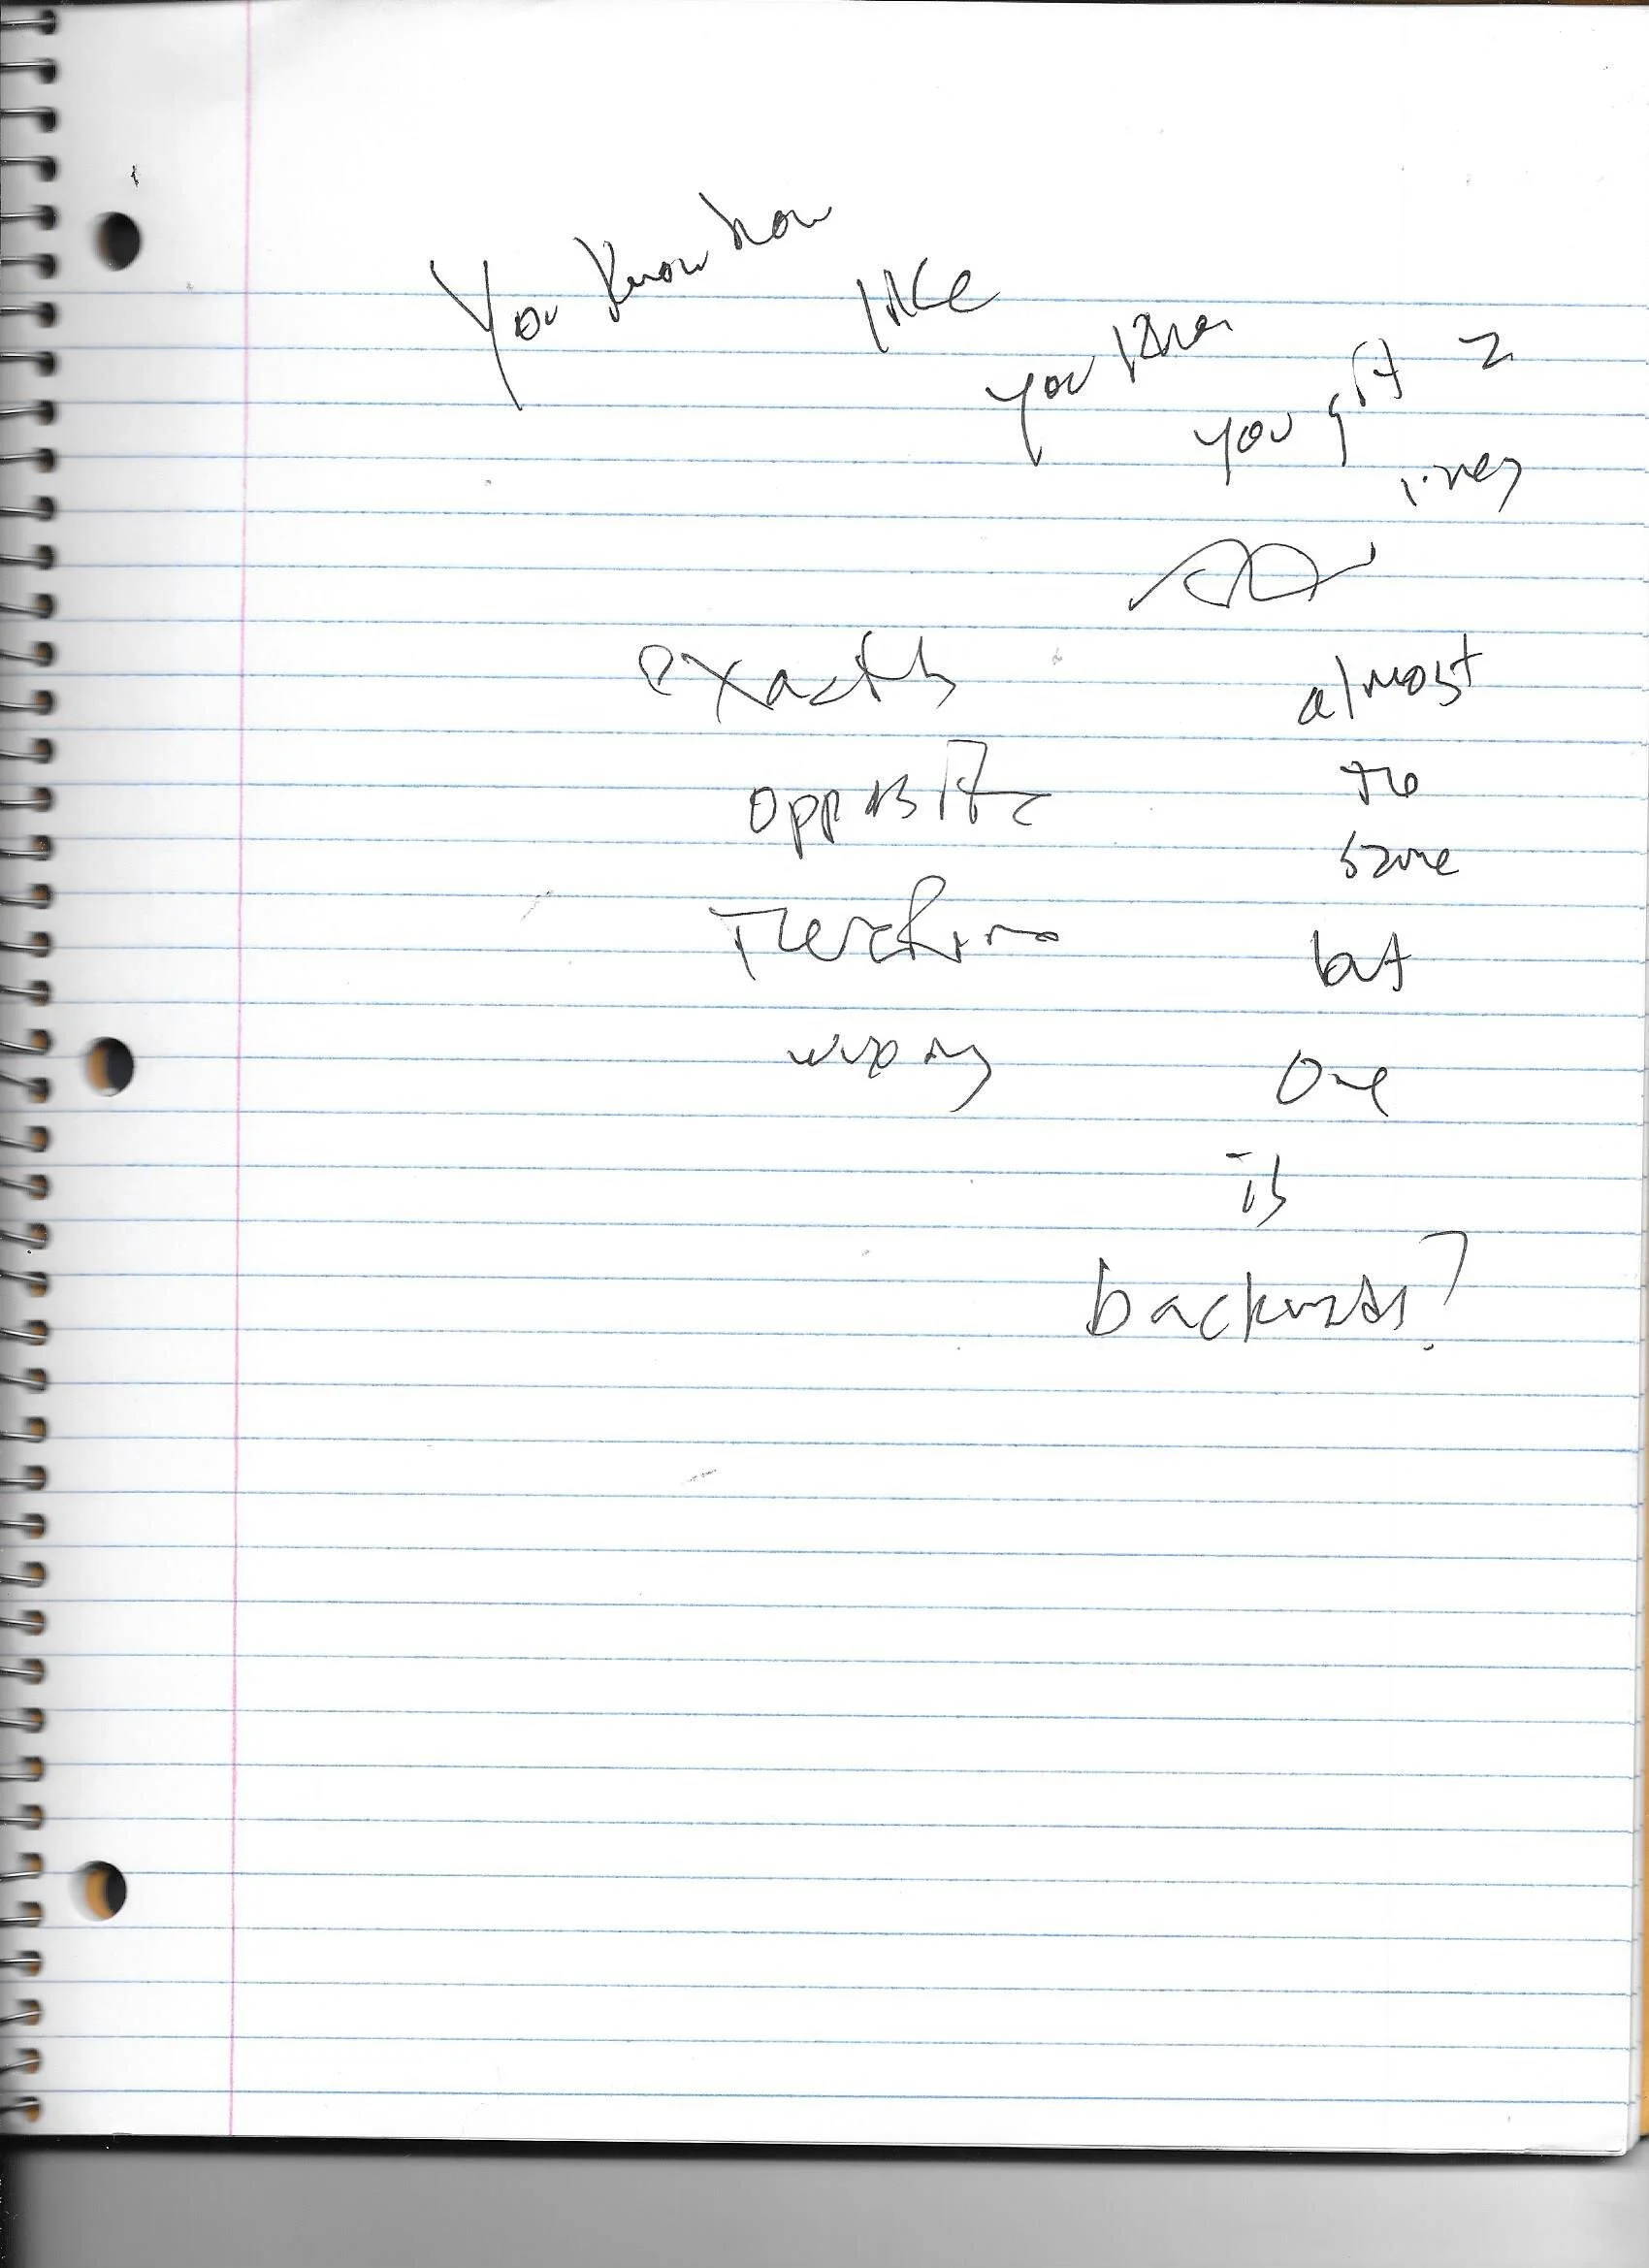 You know how
like
you know
you got 2
lines
almost
the
same
but
one
is
backwards?
exactly
opposite
therefore
wrong